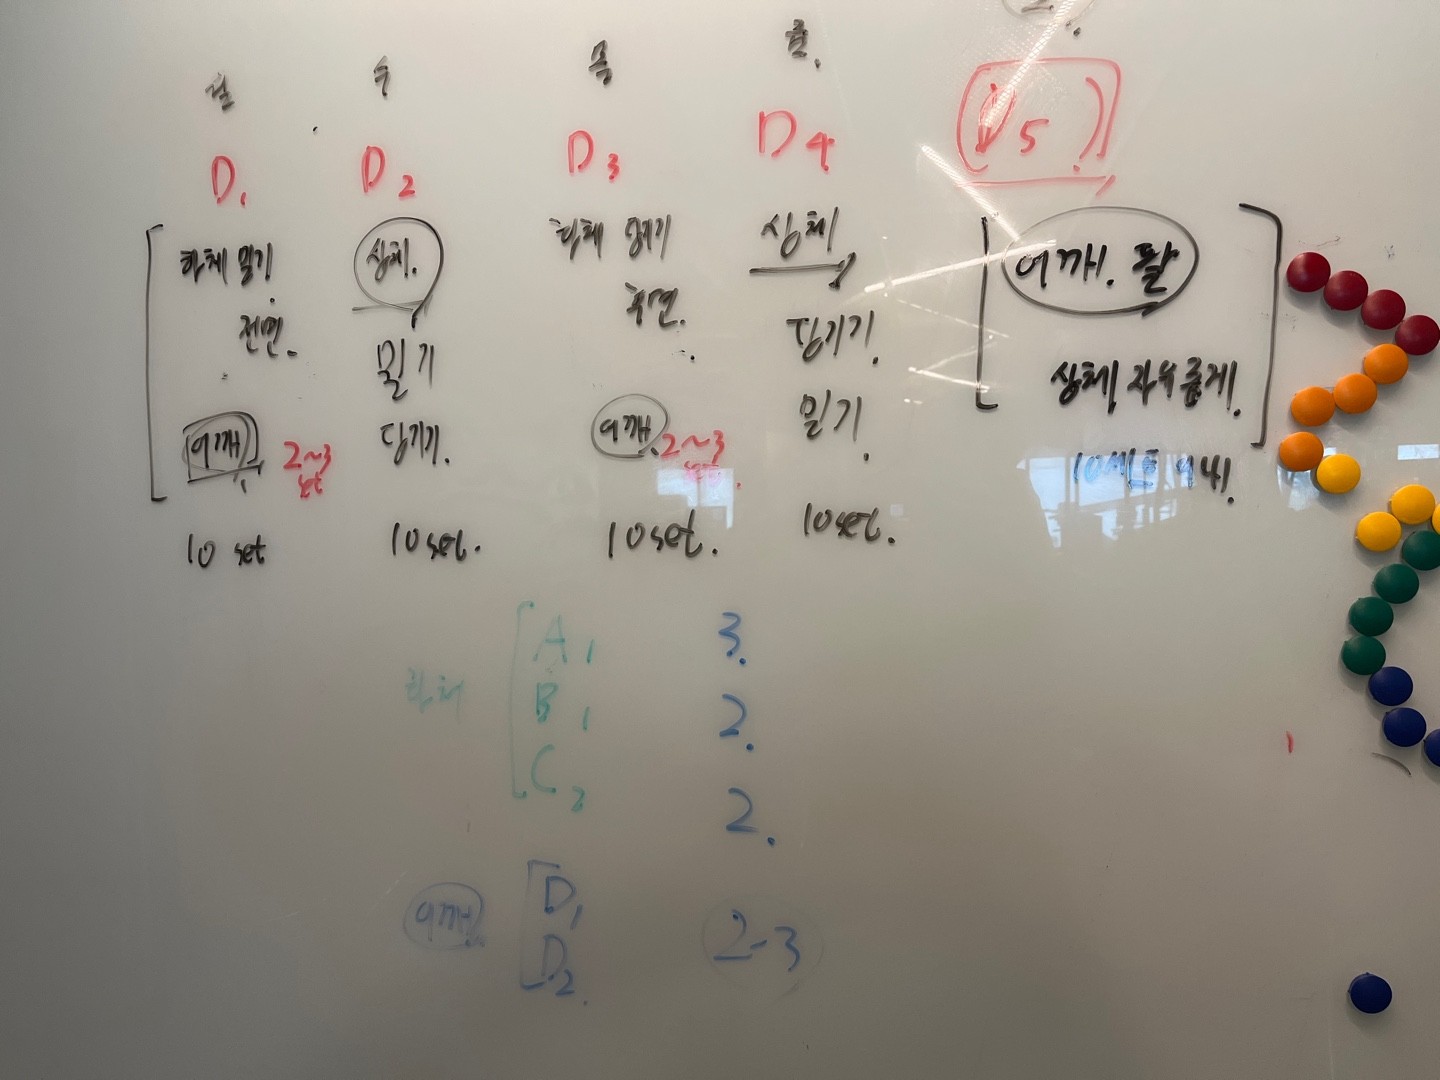 월 수 목 금.
D1 D2 D3 D4 (D5)
하체 밀기.
전면.
어깨 2~3 set
10 set
상체.
밀기
당기기.
10set.
하체 당기기
후면.
어깨 2~3 set.
10set.
상체
당기기.
밀기.
10set.
어깨. 팔
상체 자유롭게.
10세트 이내.
하체
A1 3.
B1 2.
C2 2.
어깨
D1
D2.
2-3